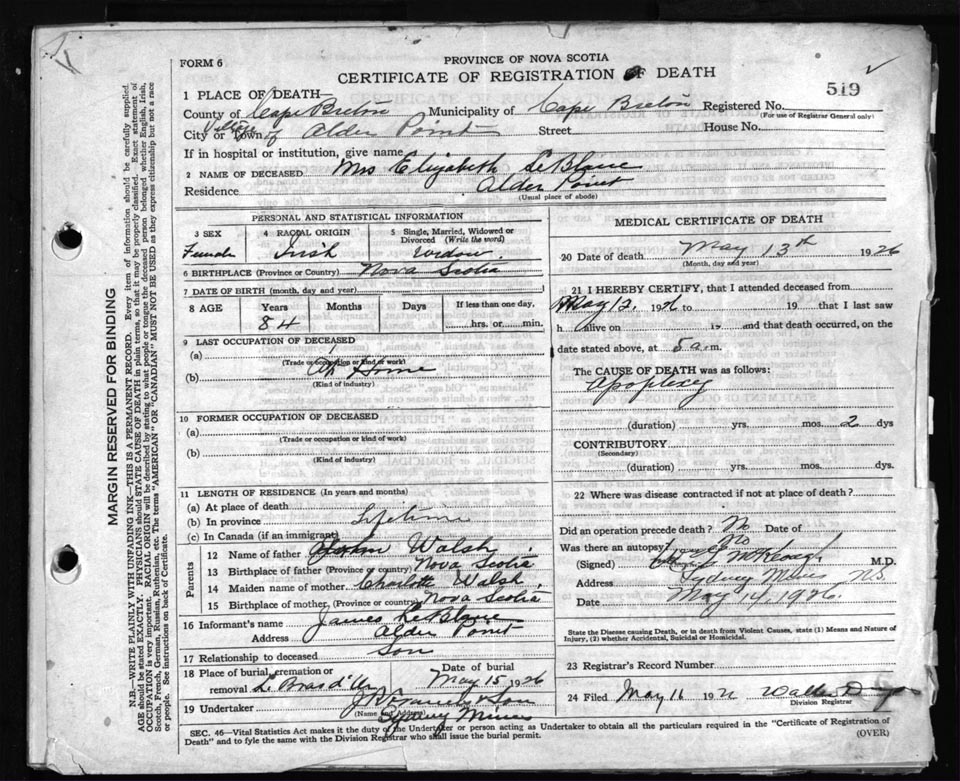 FORM 6
PROVINCE OF NOVA SCOTIA
CERTIFICATE OF REGISTRATION OF DEATH
519
1 PLACE OF DEATH
County of Cape Breton Municipality of Cape Breton Registered No.
(For use of Registrar General only)
City or Town of Alder Point Street House No.
If in hospital or institution, give name
2 NAME OF DECEASED Mrs Elizabeth LeBlanc
Residence Alder Point
(Usual place of abode)
PERSONAL AND STATISTICAL INFORMATION
3 SEX Female
4 RACIAL ORIGIN Irish
5 Single, Married, Widowed or Divorced (Write the word) Widow.
6 BIRTHPLACE (Province or Country) Nova Scotia
7 DATE OF BIRTH (month, day and year)
8 AGE Years Months Days If less than one day,
84 hrs. or min.
9 LAST OCCUPATION OF DECEASED
(a)
(Trade or occupation or kind of work)
(b) At Home
(Kind of industry)
10 FORMER OCCUPATION OF DECEASED
(a)
(Trade or occupation or kind of work)
(b)
(Kind of industry)
11 LENGTH OF RESIDENCE (In years and months)
(a) At place of death
(b) In province Lifetime
(c) In Canada (if an immigrant)
Parents
12 Name of father John Walsh
13 Birthplace of father (Province or country) Nova Scotia
14 Maiden name of mother Charlotte Walsh
15 Birthplace of mother (Province or country) Nova Scotia
16 Informant's name James LeBlanc
Address Alder Point
17 Relationship to deceased Son
18 Place of burial, cremation or removal L. Bras d'Or Date of burial May 15 1926
19 Undertaker & Son
(Name and address) Sydney Mines
MEDICAL CERTIFICATE OF DEATH
20 Date of death May 13th 1926
(Month, day and year)
21 I HEREBY CERTIFY, that I attended deceased from
May 12, 1926 to 19 that I last saw
h alive on 19 and that death occurred, on the
date stated above, at 5 a.m.
The CAUSE OF DEATH was as follows:
Apoplexy
(duration) yrs. mos. 2 dys
CONTRIBUTORY
(Secondary)
(duration) yrs. mos. dys.
22 Where was disease contracted if not at place of death?
Did an operation precede death? No Date of
Was there an autopsy No
(Signed) McKeough M.D.
Address Sydney Mines N.S.
Date May 14, 1926.
State the Disease causing Death, or in death from Violent Causes, state (1) Means and Nature of
Injury, (2) whether Accidental, Suicidal or Homicidal.
23 Registrar's Record Number
24 Filed May 16 192 Walter
Division Registrar
SEC. 46—Vital Statistics Act makes it the duty of the Undertaker or person acting as Undertaker to obtain all the particulars required in the "Certificate of Registration of
Death" and to fyle the same with the Division Registrar who shall issue the burial permit. (OVER)
MARGIN RESERVED FOR BINDING
N.B.—WRITE PLAINLY WITH UNFADING INK—THIS IS A PERMANENT RECORD. Every item of information should be carefully supplied.
AGE should be stated EXACTLY. PHYSICIANS should STATE CAUSE OF DEATH in plain terms, so that it may be properly classified. Exact statement of
OCCUPATION is very important. RACIAL ORIGIN will be described by stating to what people or tongue the deceased person belonged whether English, Irish,
Scotch, French, German, Russian, Ruthenian, etc. The terms "AMERICAN" or "CANADIAN" MUST NOT BE USED as they express citizenship but not a race
or people. See instructions on back of Certificate.